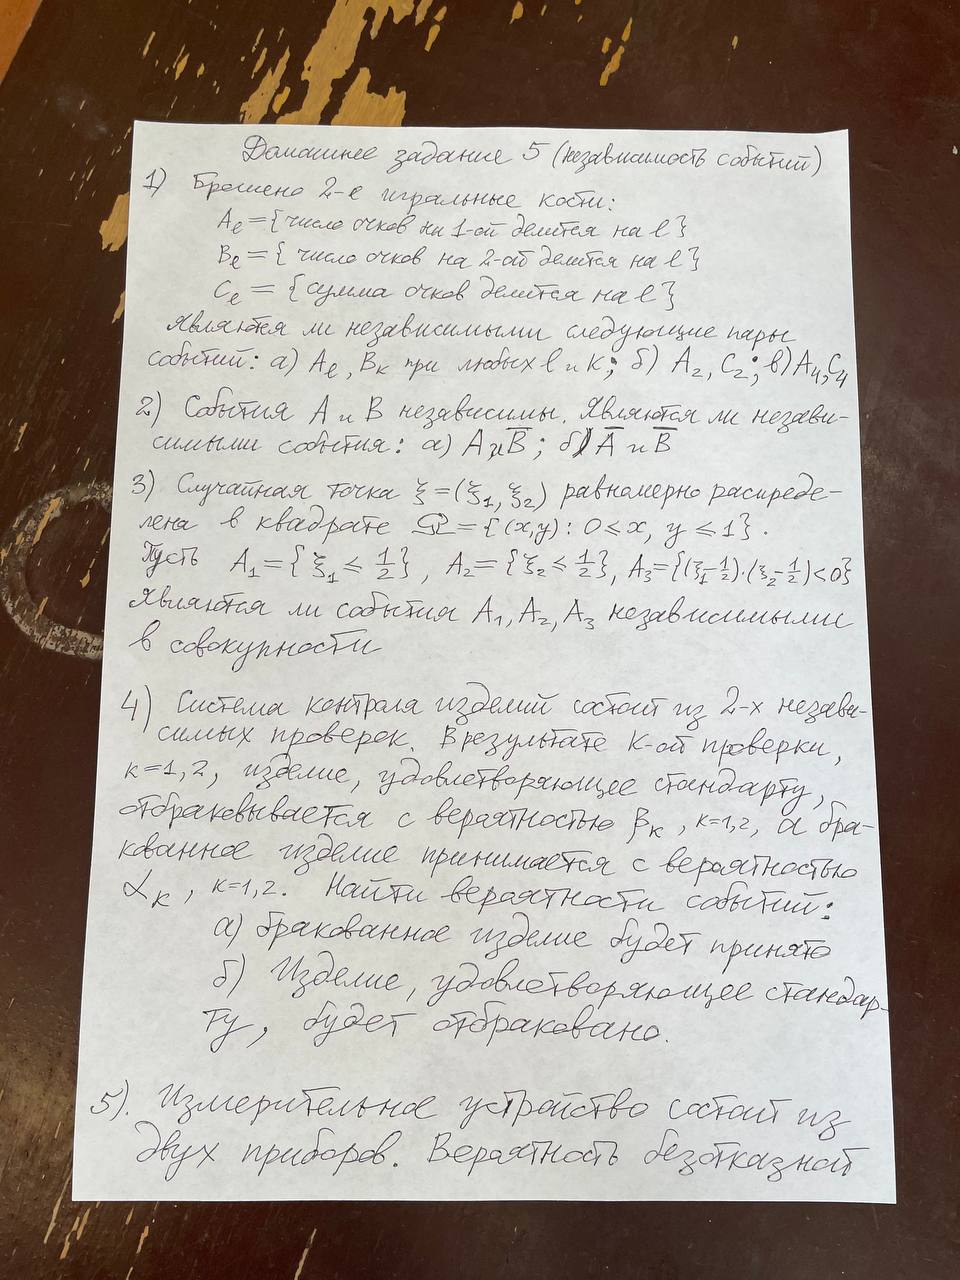 Домашнее задание 5 (независимость событий)
1) Брошено 2-е игральные кости:
Aℓ = {число очков на 1-ой делится на ℓ}
Bℓ = {число очков на 2-ой делится на ℓ}
Cℓ = {сумма очков делится на ℓ}
Являются ли независимыми следующие пары
событий: а) Aℓ, Bк при любых ℓ и к; б) A₂, C₂; в) A₄, C₄
2) События A и B независимы. Являются ли незави-
симыми события: а) A и B̅; б) A̅ и B̅
3) Случайная точка ξ=(ξ₁, ξ₂) равномерно распреде-
лена в квадрате Ω={(x,y): 0≤x, y≤1}.
Пусть A₁={ξ₁≤1/2}, A₂={ξ₂≤1/2}, A₃={(ξ₁-1/2)·(ξ₂-1/2)<0}
Являются ли события A₁, A₂, A₃ независимыми
в совокупности
4) Система контроля изделий состоит из 2-х незави-
симых проверок. В результате к-ой проверки,
к=1,2, изделие, удовлетворяющее стандарту,
отбраковывается с вероятностью βк, к=1,2, а бра-
кованное изделие принимается с вероятностью
αк, к=1,2. Найти вероятности событий:
а) бракованное изделие будет принято
б) Изделие, удовлетворяющее стандар-
ту, будет отбраковано.
5). Измерительное устройство состоит из
двух приборов. Вероятность безотказной